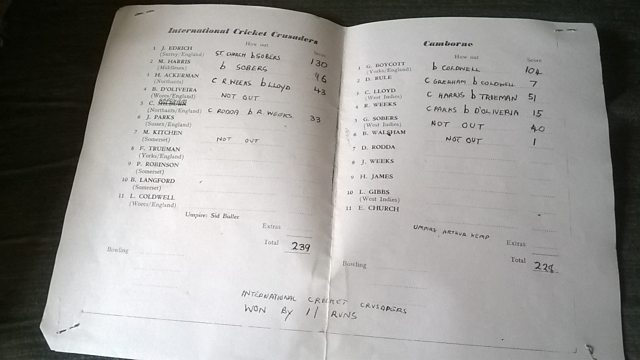 International Cricket Crusaders
How out Score
1 J. EDRICH ST. CHURCH b SOBERS 130
(Surrey/England)
2 M. HARRIS b SOBERS 96
(Middlesex)
3 H. ACKERMAN C R. WEEKS b LLOYD 43
(Northants)
4 B. D'OLIVEIRA NOT OUT
(Worcs/England)
5 C.
(Northants/England) C RODDA b R. WEEKS 33
6 J. PARKS
(Sussex/England)
7 M. KITCHEN NOT OUT
(Somerset)
8 F. TRUEMAN
(Yorks/England)
9 P. ROBINSON
(Somerset)
10 B. LANGFORD
(Somerset)
11 L. COLDWELL
(Worcs/England)
Umpire: Sid Buller
Extras
Total 239
Bowling
Camborne
How out Score
1 G. BOYCOTT b COLDWELL 104
(Yorks/England)
2 D. RULE C GREENHAM b COLDWELL 7
C. LLOYD C HARRIS b TRUEMAN 51
(West Indies)
R. WEEKS C PARKS b D'OLIVERIA 15
5 G. SOBERS NOT OUT 40
(West Indies)
6 B. WALSHAM NOT OUT 1
7 D. RODDA
8 J. WEEKS
9 H. JAMES
10 L. GIBBS
(West Indies)
11 E. CHURCH
UMPIRE ARTHUR KEMP
Extras
Total 228
Bowling
INTERNATIONAL CRICKET CRUSADERS
WON BY 11 RUNS